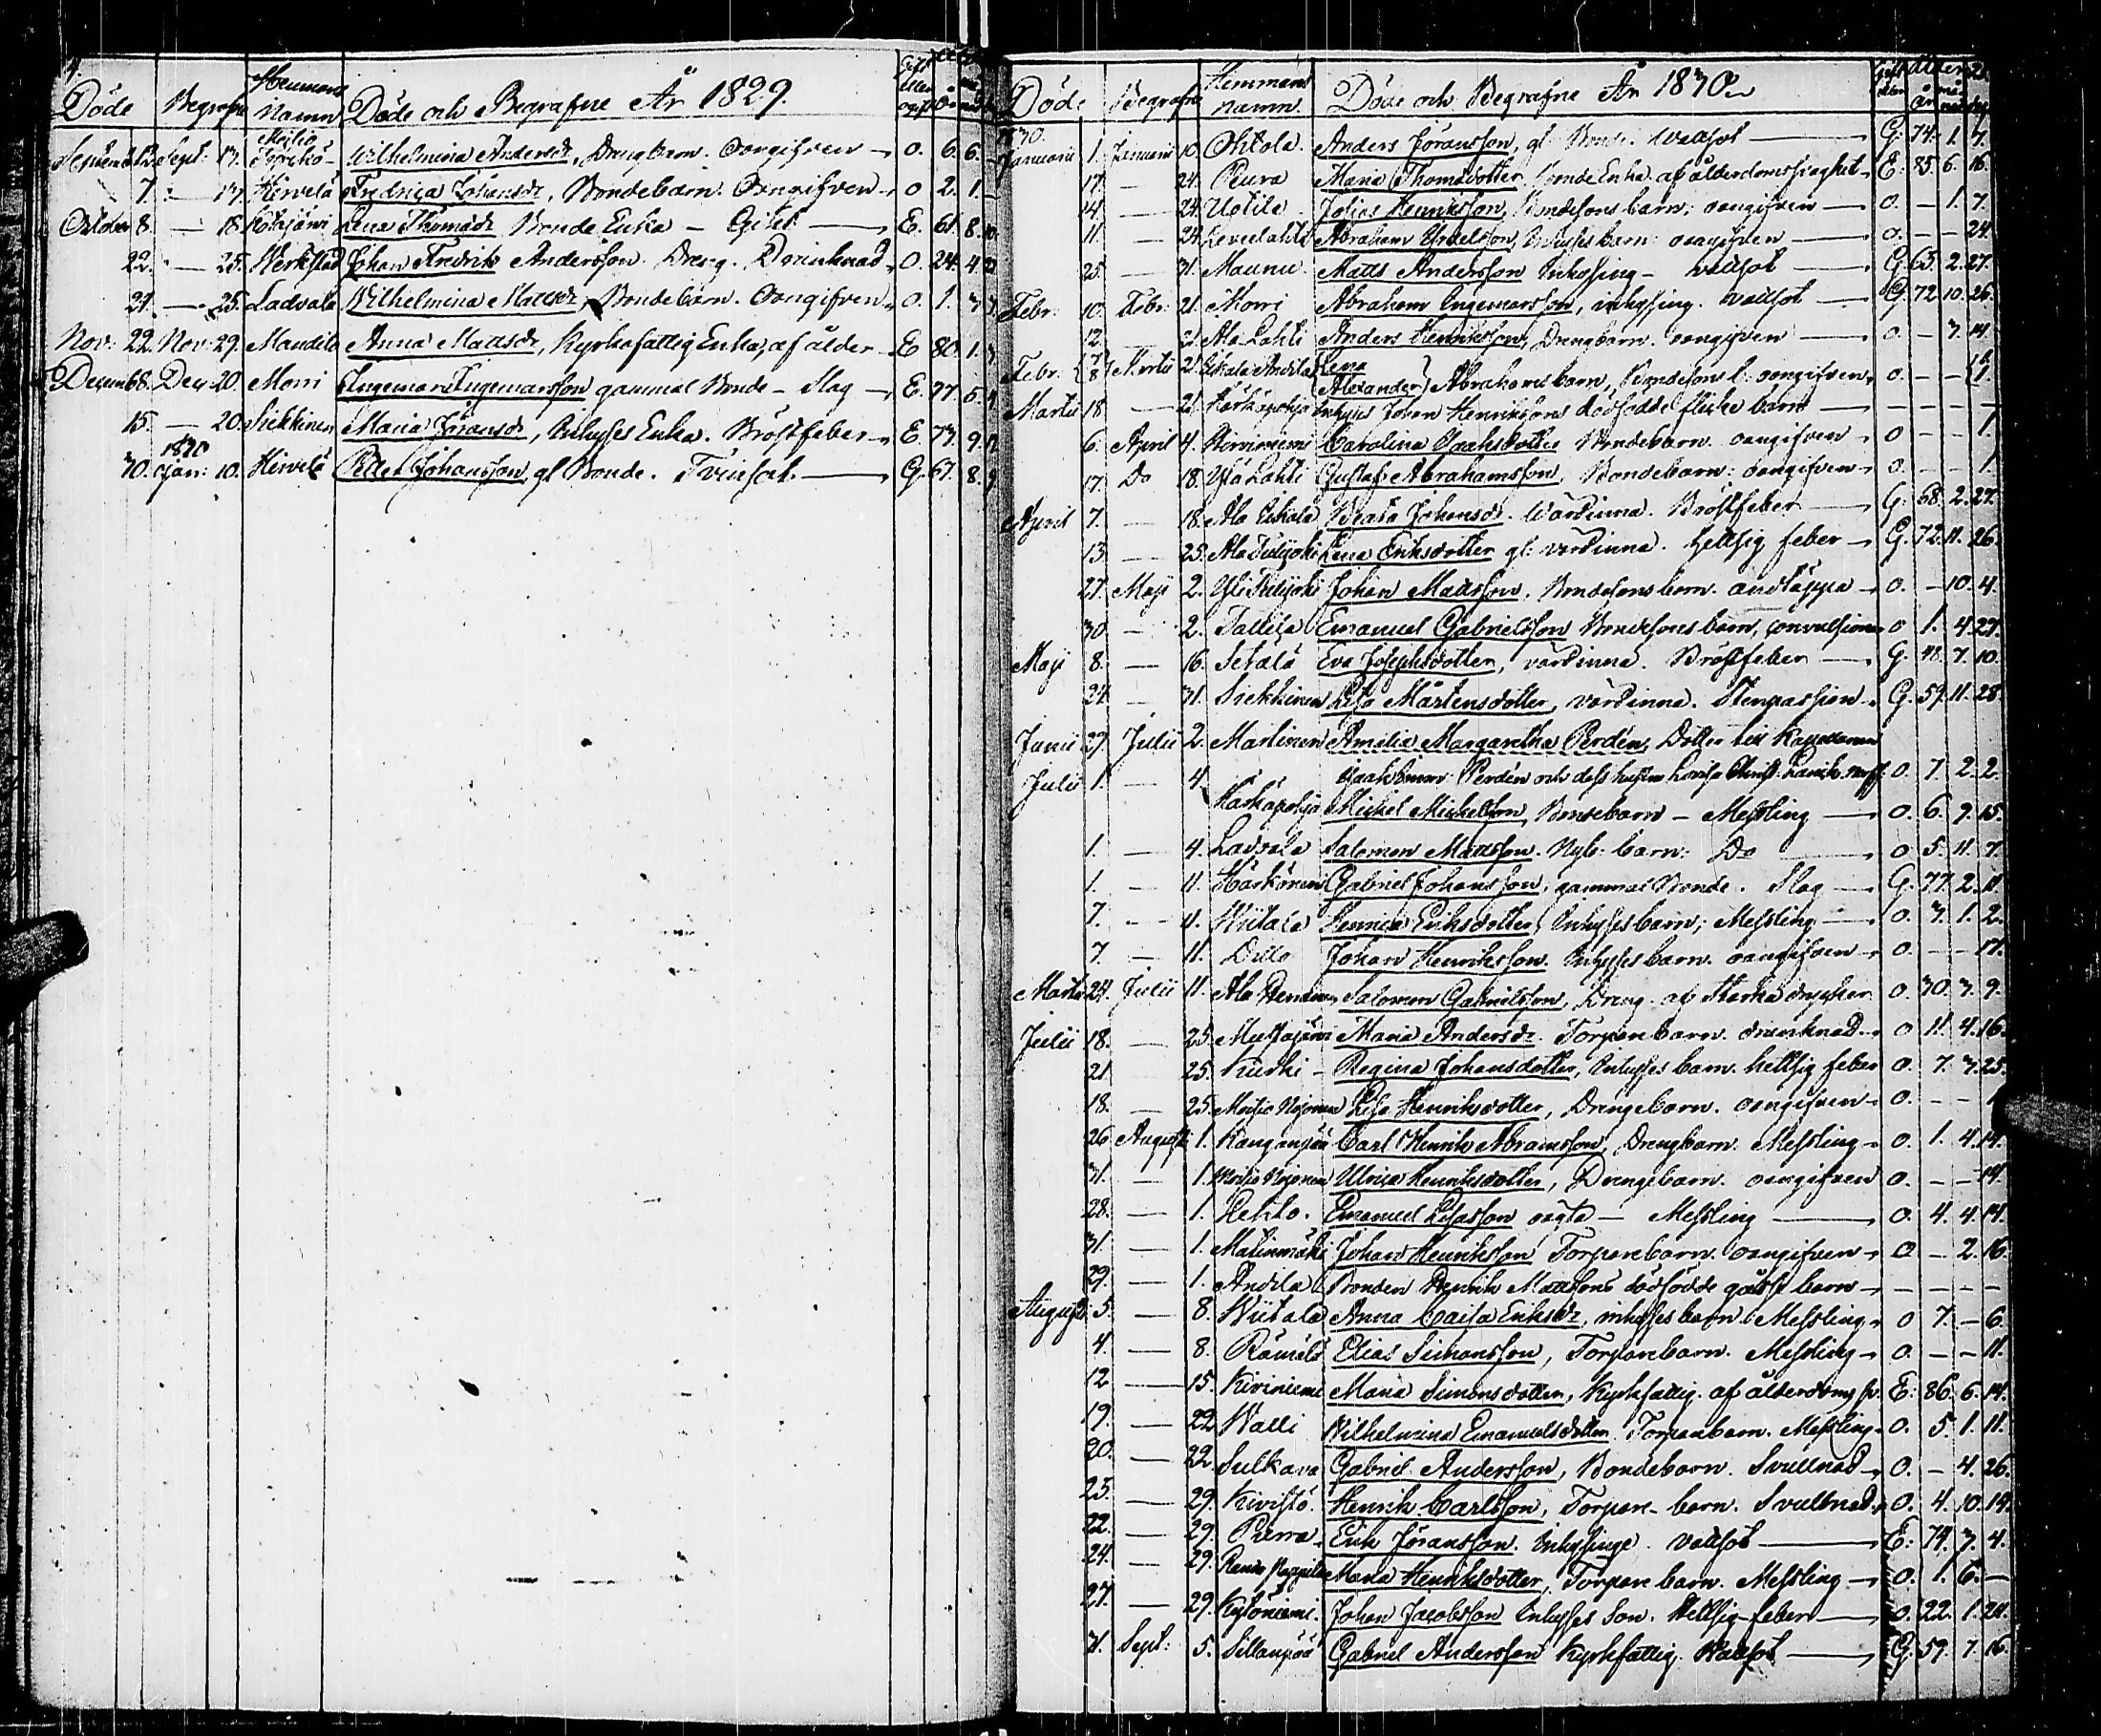 Döde Begrafne Hemmans Namn Döde och Begrafne År 1829.
Septemb 12. Sept: 13. Wilhelmina Andersdr, Drengbarn. Oangifven — O. 6. 6. —
7. — 13. Hirvelä Fredrica Johansdr, Bondebarn. Oangifven — O 2. 1. —
October 8. — 18. Kotajärvi Lena Thomasdr Bonde Enka — — E. 61. 8.
22. — 25. Johan Fredrik Andersson. Dreng. Drunknad O. 24. 4.
21. — 25. Ladvala Wilhelmina Mattsdr, Bondebarn. Oangifven O. 1.
Nov: 22. Nov: 29. Mandila Anna Mattsdr, Kyrkofattig Enka, af ålder E 80. 1.
Decemb 8. Dec: 20. Morri Ingemar Ingemarsson gammal Bonde — Slag — E. 77. 5.
15. — 20. Siekkinen Maria Jöransdr, Inhyses Enka. Bröstfeber E. 73. 9.
1830
30. Jan: 10. Hirvelä Petter Johansson, gl Bonde. Tvinsot — G. 67. 8.
Döde Begrafne Hemmans namn. Döde och Begrafne År 1830.
1830.
Januarii 1. Januarii 10. Ohtola Anders Jöransson, gl. Bonde. Wattsot — G: 74. 1. 7.
17. — 24. Peura Maria Thomsdotter. Bonde Enka. af ålderdomssvaghet E: 85. 6. 16.
14. — 24. Uotila Henriksson, Bondesons barn; oangifven — O. — 1. 7.
11 — 24. Abraham Inhyses barn: oangifven — O. — — 24.
25 — 31. Maunu Matts Andersson Inhysing — Wattsot — G. 63. 2. 27.
Febr: 10. Febr: 21. Morri Abraham Ingemarsson, inhysing. Wattsot — G. 72 10. 26.
12 — 21. Ala Lahti Anders Henriksson, Drengbarn. oangifven — O. — 3. 14.
Febr. 7 8 Martii 21. Andila Lena
Alexander Abrahams barn, Bondesons b: oangifven, O. — — 1.
Martii 18 — 21. Harhapohja Inhyses Johan Henrikssons dödfödde flicke barn — — — — —
6. April 4. Kiviniemi Carolina Isaksdotter Bondebarn. oangifven O — — 1.
17. Do 18. Yla Lahti Gustaf Abrahamsson, Bondebarn: oangifven O. — — 1.
April 7. — 18. Ala Eskola Beata Johansdr. Wärdinna. Bröstfeber — G: 68. 2. 27.
13. — 25. Lena Eriksdotter gl: värdinna. hettsig feber G. 72. 11. 26.
27. Maji 2. Johan Mattsson. Bondesons barn. andtäppa O. — 10. 4.
30. — 2. Tallila Emanuel Gabrielsson Bondesons barn, convulsioner O 1. 4. 27.
Maji 8. — 16. Setälä Eva Josephsdotter, värdinna. Bröstfeber — G. 48. 7. 10.
24. — 31. Siekkinen Lisa Mårtensdotter, värdinna. Stenpassion G. 59. 11. 28
Junii 29. Julii 2. Martinen Amelia Margaretha Perdén, Dotter till Kapellanen
Julii 1. — 4. Perdén och dess hustru Lovisa O. 7. 2. 2.
Harhapohja Michel Michelsson, Bondebarn — Messling — O. 6. 9. 15.
1. — 4. Ladvala Salomon Mattsson. Nyb: barn: Do — O 5. 11. 7.
1. — 11. Härkönen Gabriel Johansson, gammal Bonde. Slag — G. 77. 2. 11.
7. — 11. Wiitala Henrica Eriksdotter, Inhyses barn; Messling — O. 3. 1. 2.
7. — 11. Ditto Johan Henriksson. Inhyses barn. oangifven O. — — 17.
Martii 24. Julii 11. Salomon Gabrielsson, Dreng. af Starka drycker O. 30. 3. 9.
Julii 18. — 25. Mustajärvi Maria Andersdr. Torpare barn. drunknad O 11. 4. 16.
21. — 25. Kurki — Regina Johansdotter, Inhyses barn. hettsig feber O. 7. 3. 25.
18. — 25. Lisa Henriksdotter, Drengebarn. oangifven O. — — 1
26. Augusti 1. Kangaspää Carl Henrik Abramsson, Drengbarn. Messling O. 1. 4. 14.
31. — 1. Ulrica Henriksdotter, Drengebarn. oangifven O. — — 14.
28. — 1. Hehto. Emanuel Lisasson oägta — Messling — O. 4. 4. 14.
31. — 1. Matinmäki Johan Henriksson Torparebarn. oangifven O — 2. 16
29. — 1. Andila Bonden Henrik Mattsons dödfödde gosse barn — — — —
Augusti 5. — 8. Wiitala Anna Caisa Eriksdr, inhyses barn. Messling O 7. — 6.
4. — 8. Rämälä Elias Simonsson, Torparebarn. Messling O. — — 11.
12 — 15. Kiviniemi Maria Simonsdotter, Kyrkfattig. af ålderdoms sv. E: 86. 6. 14.
19. — 22. Walli Wilhelmina Emanuelsdotter Torparebarn. Messling O. 5. 1. 11.
20. — 22. Sulkava Gabriel Andersson, Bondebarn. Svullnad O. — 4. 26.
23. — 29. Kivistö. Henrik Carlsson, Torpare barn. Svullnad O. 4. 10. 19.
22. — 29. Erik Jöransson. Inhysinge. Vattsot — E: 74. 3. 4.
24. — 29. Maria Henriksdotter, Torpare barn. Messling — O. 1. 6. —
27. — 29. Kytöniemi. Johan Jacobsson Inhyses Son. Hettsig feber — O. 22. 1. 24.
31. Sept: 5. Sillanpää Gabriel Andersson Kyrkfattig. Wattsot — G. 59. 7. 16.